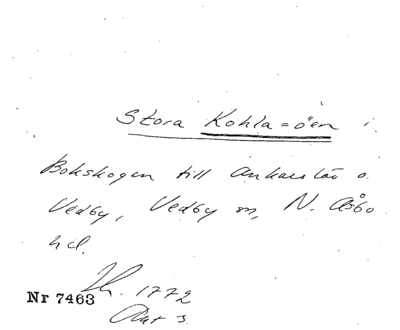 Stora Kohla=öen i
Bokskogen till Ankarslöv o.
Vedby, Vedby sn, N. Åsbo
hd.
Nr 7463
1772
Akt 3